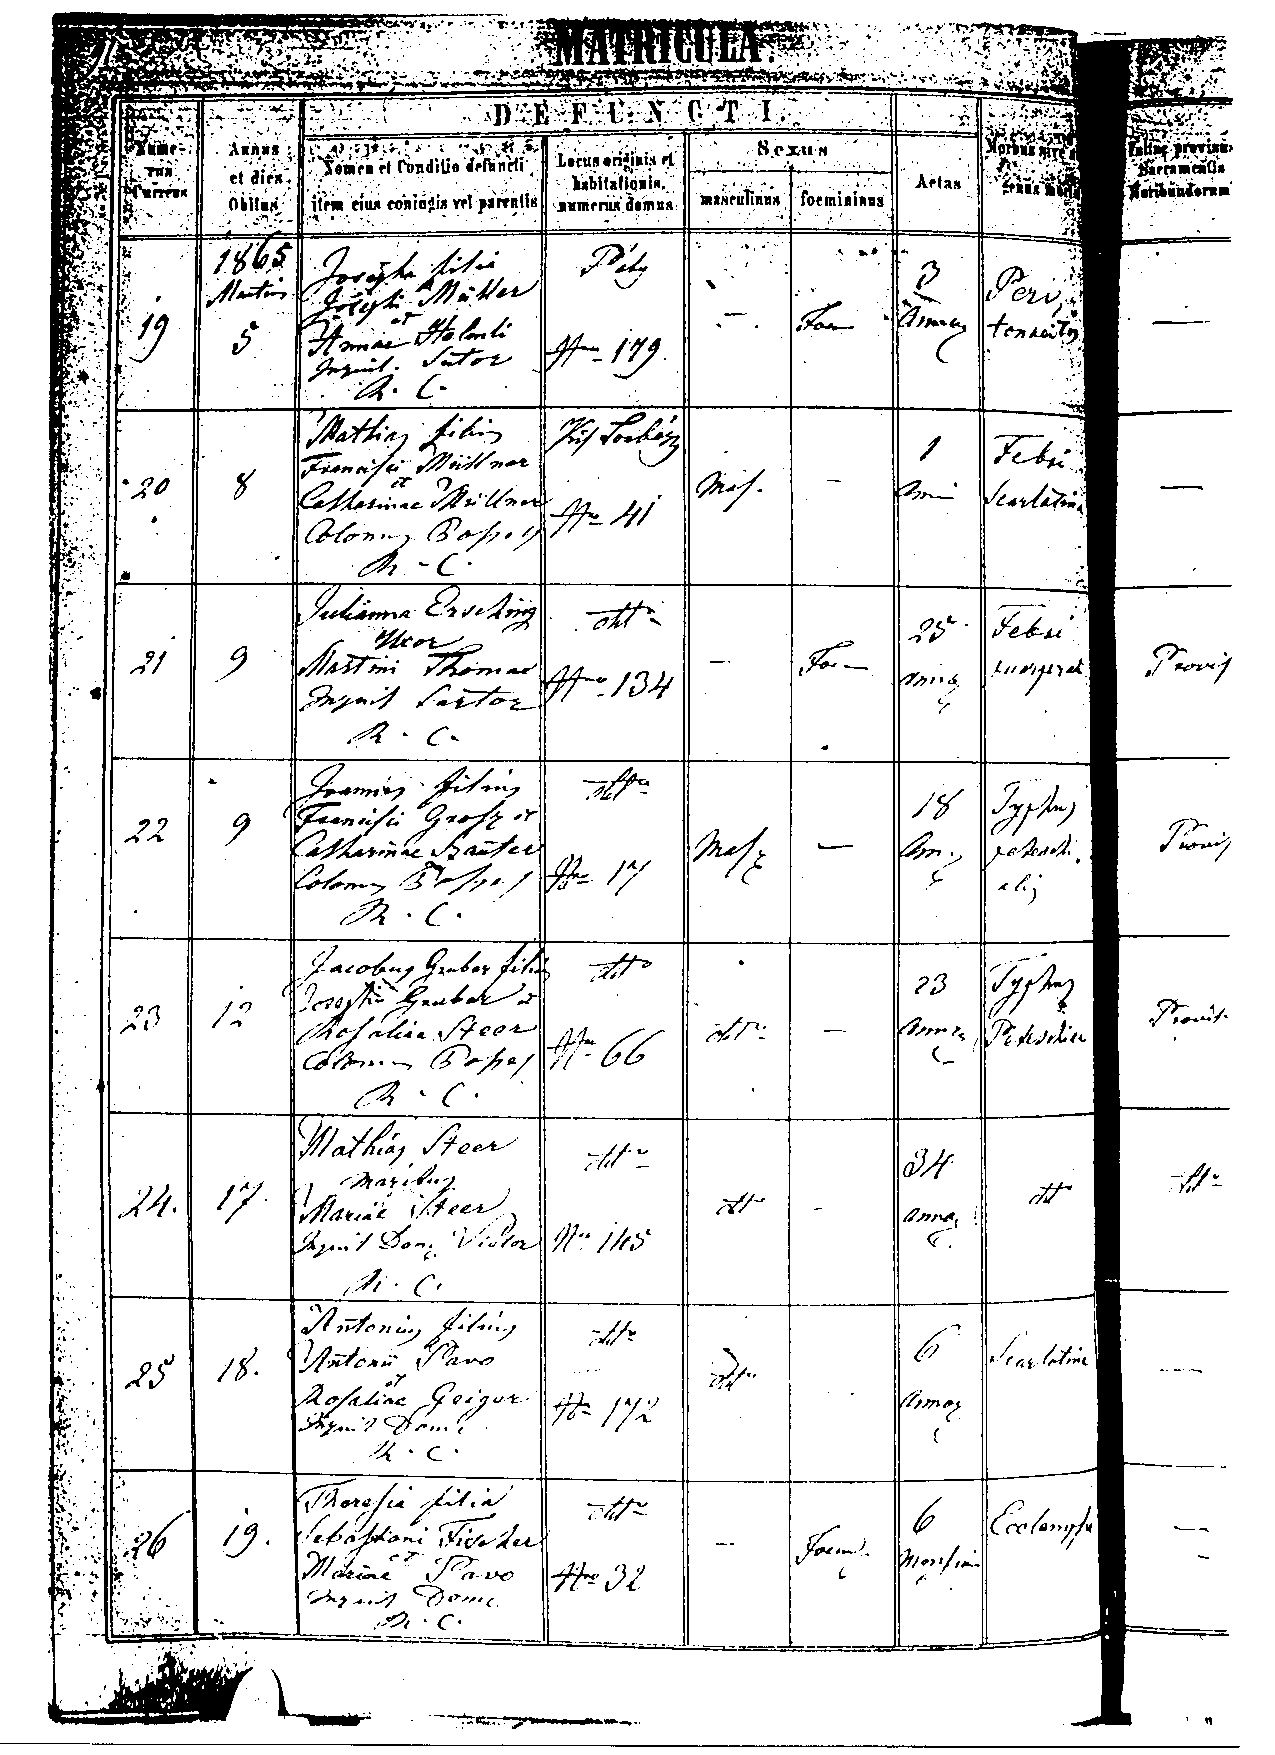 MATRICULA.
DEFUNCTI.
Numerus Currens
Annus et dies Obitus
Nomen et Conditio defuncti item eius coniugis vel parentis
Locus originis et habitationis, numerus domus
Sexus
masculinus
foemininus
Aetas
Morbus
Sacramentis
Moribundorum
1865
Martius
19
5
Josepha filia
Josephi Müller
et
Annae
Inquil. Sutor
R. C.
Páty
Nro 179.
—
Foem
3
Annor
—
20
8
Mathias filius
Francisci Müllner
et
Catharinae Müllner
Colonus
R. C.
Nro 41
Mas.
—
1
Anni
Febri
Scarlatina
—
21
9
Julianna
Uxor
Martini Thomae
Inquil Sartor
R. C.
dtto
Nro 134
—
Foem
25
annor
Febri
Provis
22
9
Joannes filius
Francisci Grosz et
Catharinae
Colonus
R. C.
dtto
Nro 17
Mas
—
18
Ann
Typhus
petechialis
Provis
23
12
Jacobus Gruber filius
Josephi Gruber et
Rosaliae Steer
Colonus
R. C.
dtto
Nro 66
dtto
—
23
Annor
Typhus
Provis
24.
17.
Mathias Steer
maritus
Mariae Steer
Inquil Dom.
R. C.
dtto
Nro 145
dtto
-
34
annor
dtto
dtto
25
18.
Antonius filius
Antonii Pavo
et
Rosaliae Geiger
Inquil Dom.
R. C.
dtto
Nro 172
dtto
6
Annor
Scarlatina
—
26
19.
Theresia filia
Sebastiani Fischer
et
Mariae Pavo
Inquil Dom.
R. C.
dtto
Nro 32
—
Foem.
6
Mensium
—